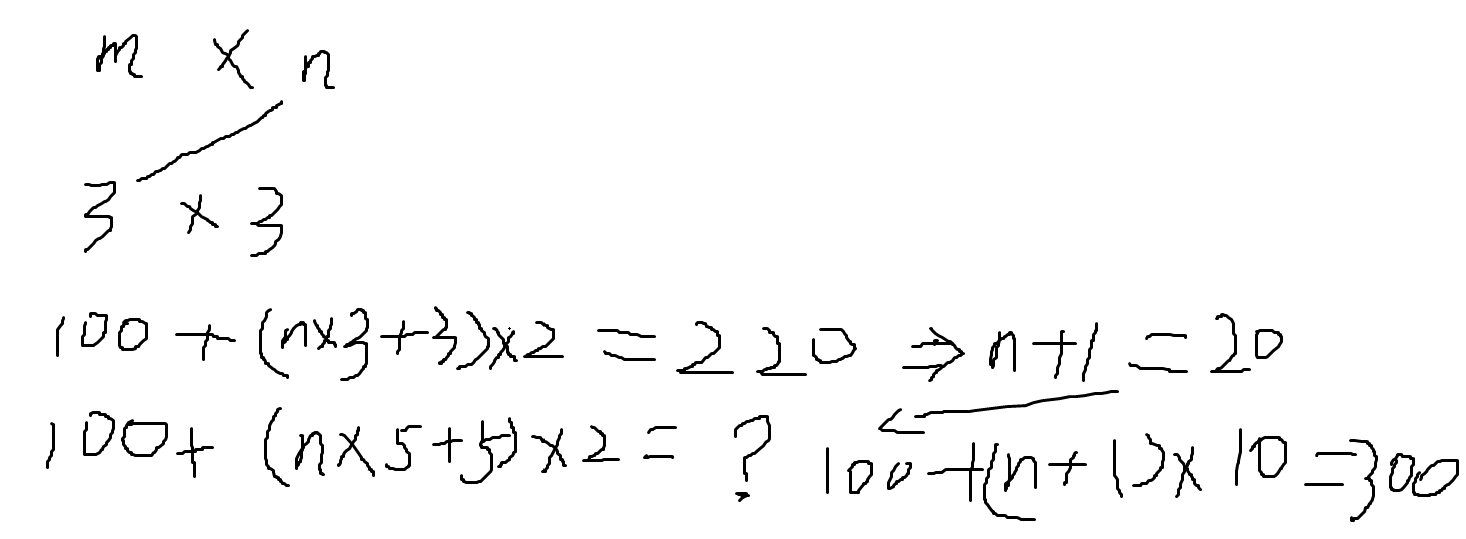 m × n
3 × 3
100 + (n×3+3)×2 = 220 ⇒ n+1 = 20
100+ (n×5+5)×2 = ? 100+(n+1)×10=300